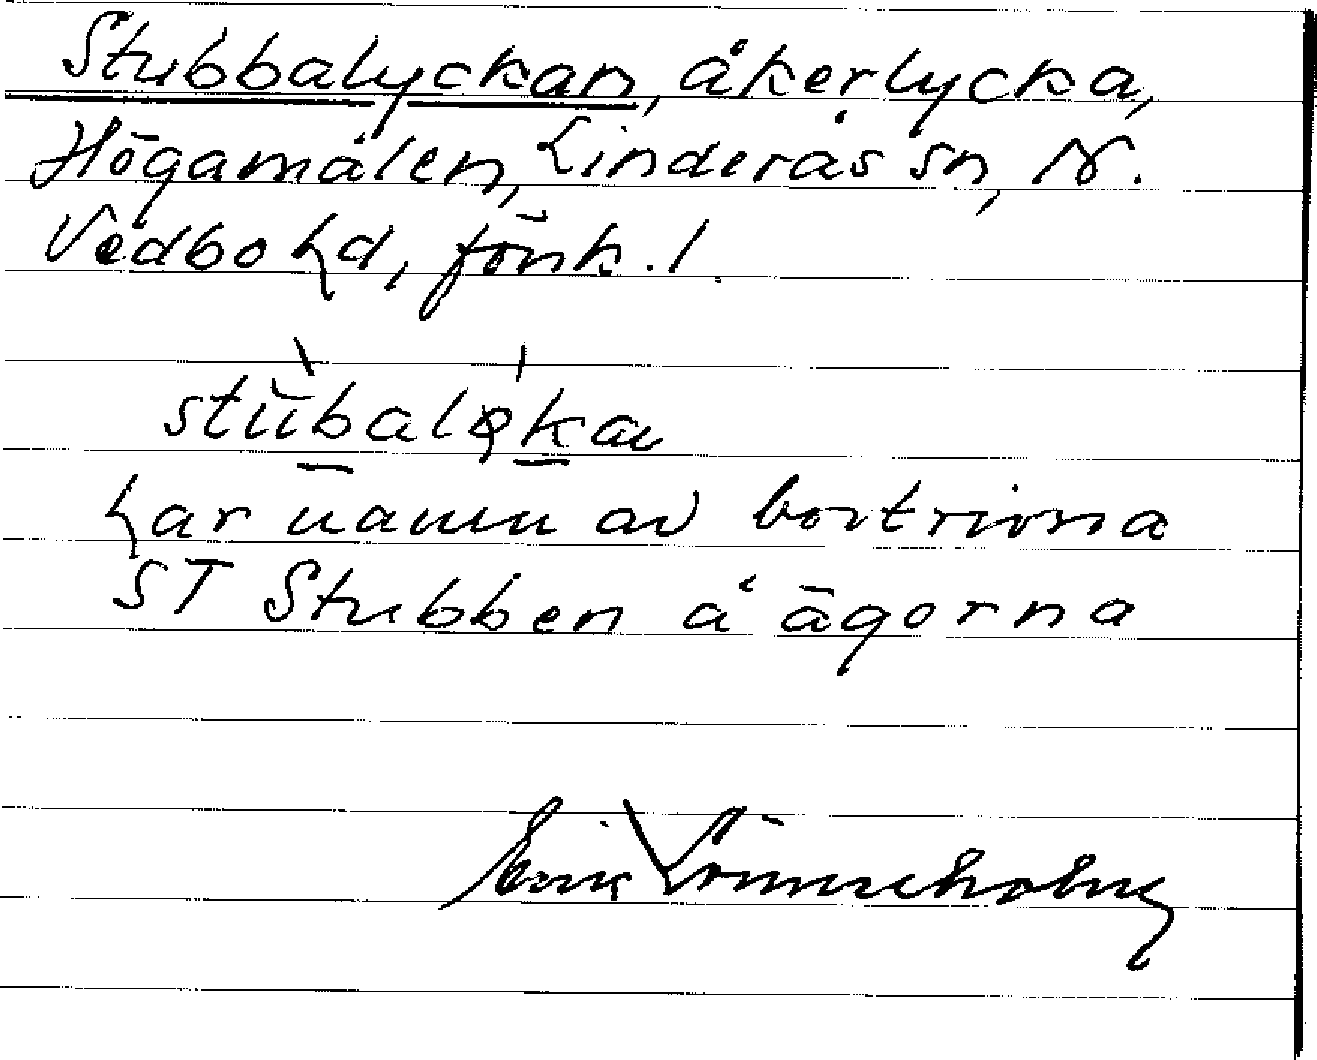 Stubbalyckan, åkerlycka,
Högamålen, Linderås sn, N.
Vedbo hd, Jönk. l.
har namn av bortrivna
ST Stubben å ägorna
Erik